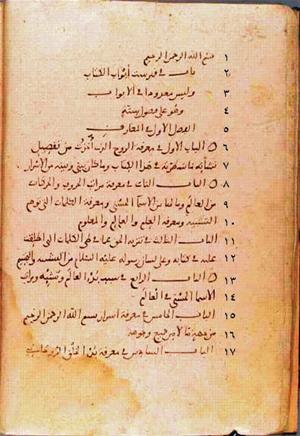 بسم الله الرحمن الرحيم ١
باب في فهرست أبواب الكتاب ٢
وليس معدودا في الابواب ٣
وهو على فصول ستة ٤
الفصل الاول في المعارف ٥
الباب الاول في معرفة الروح الذي أخذت من تفصيل ٦
نشأته ما سطرته في هذا الكتاب وما كان بيني وبينه من الاسرار ٧
الباب الثاني في معرفة مراتب الحروف والحركات ٨
من العالم وما لها من الاسماء الحسنى ومعرفة الكلمات التي توهم ٩
التشبيه ومعرفة العلم والعالم والمعلوم ١٠
الباب الثالث في تنزيه الحق عما في الكلمات التي اطلقت ١١
عليه في كتابه وعلى لسان رسوله عليه السلام من التشبيه والتجسيم ١٢
الباب الرابع في سبب بدء العالم ومراتب ١٣
الاسماء الحسنى في العالم ١٤
الباب الخامس في معرفة اسرار بسم الله الرحمن الرحيم ١٥
من جهة ما لا من جميع وجوهه ١٦
الباب السادس في معرفة بدء الخلق الروحاني ١٧